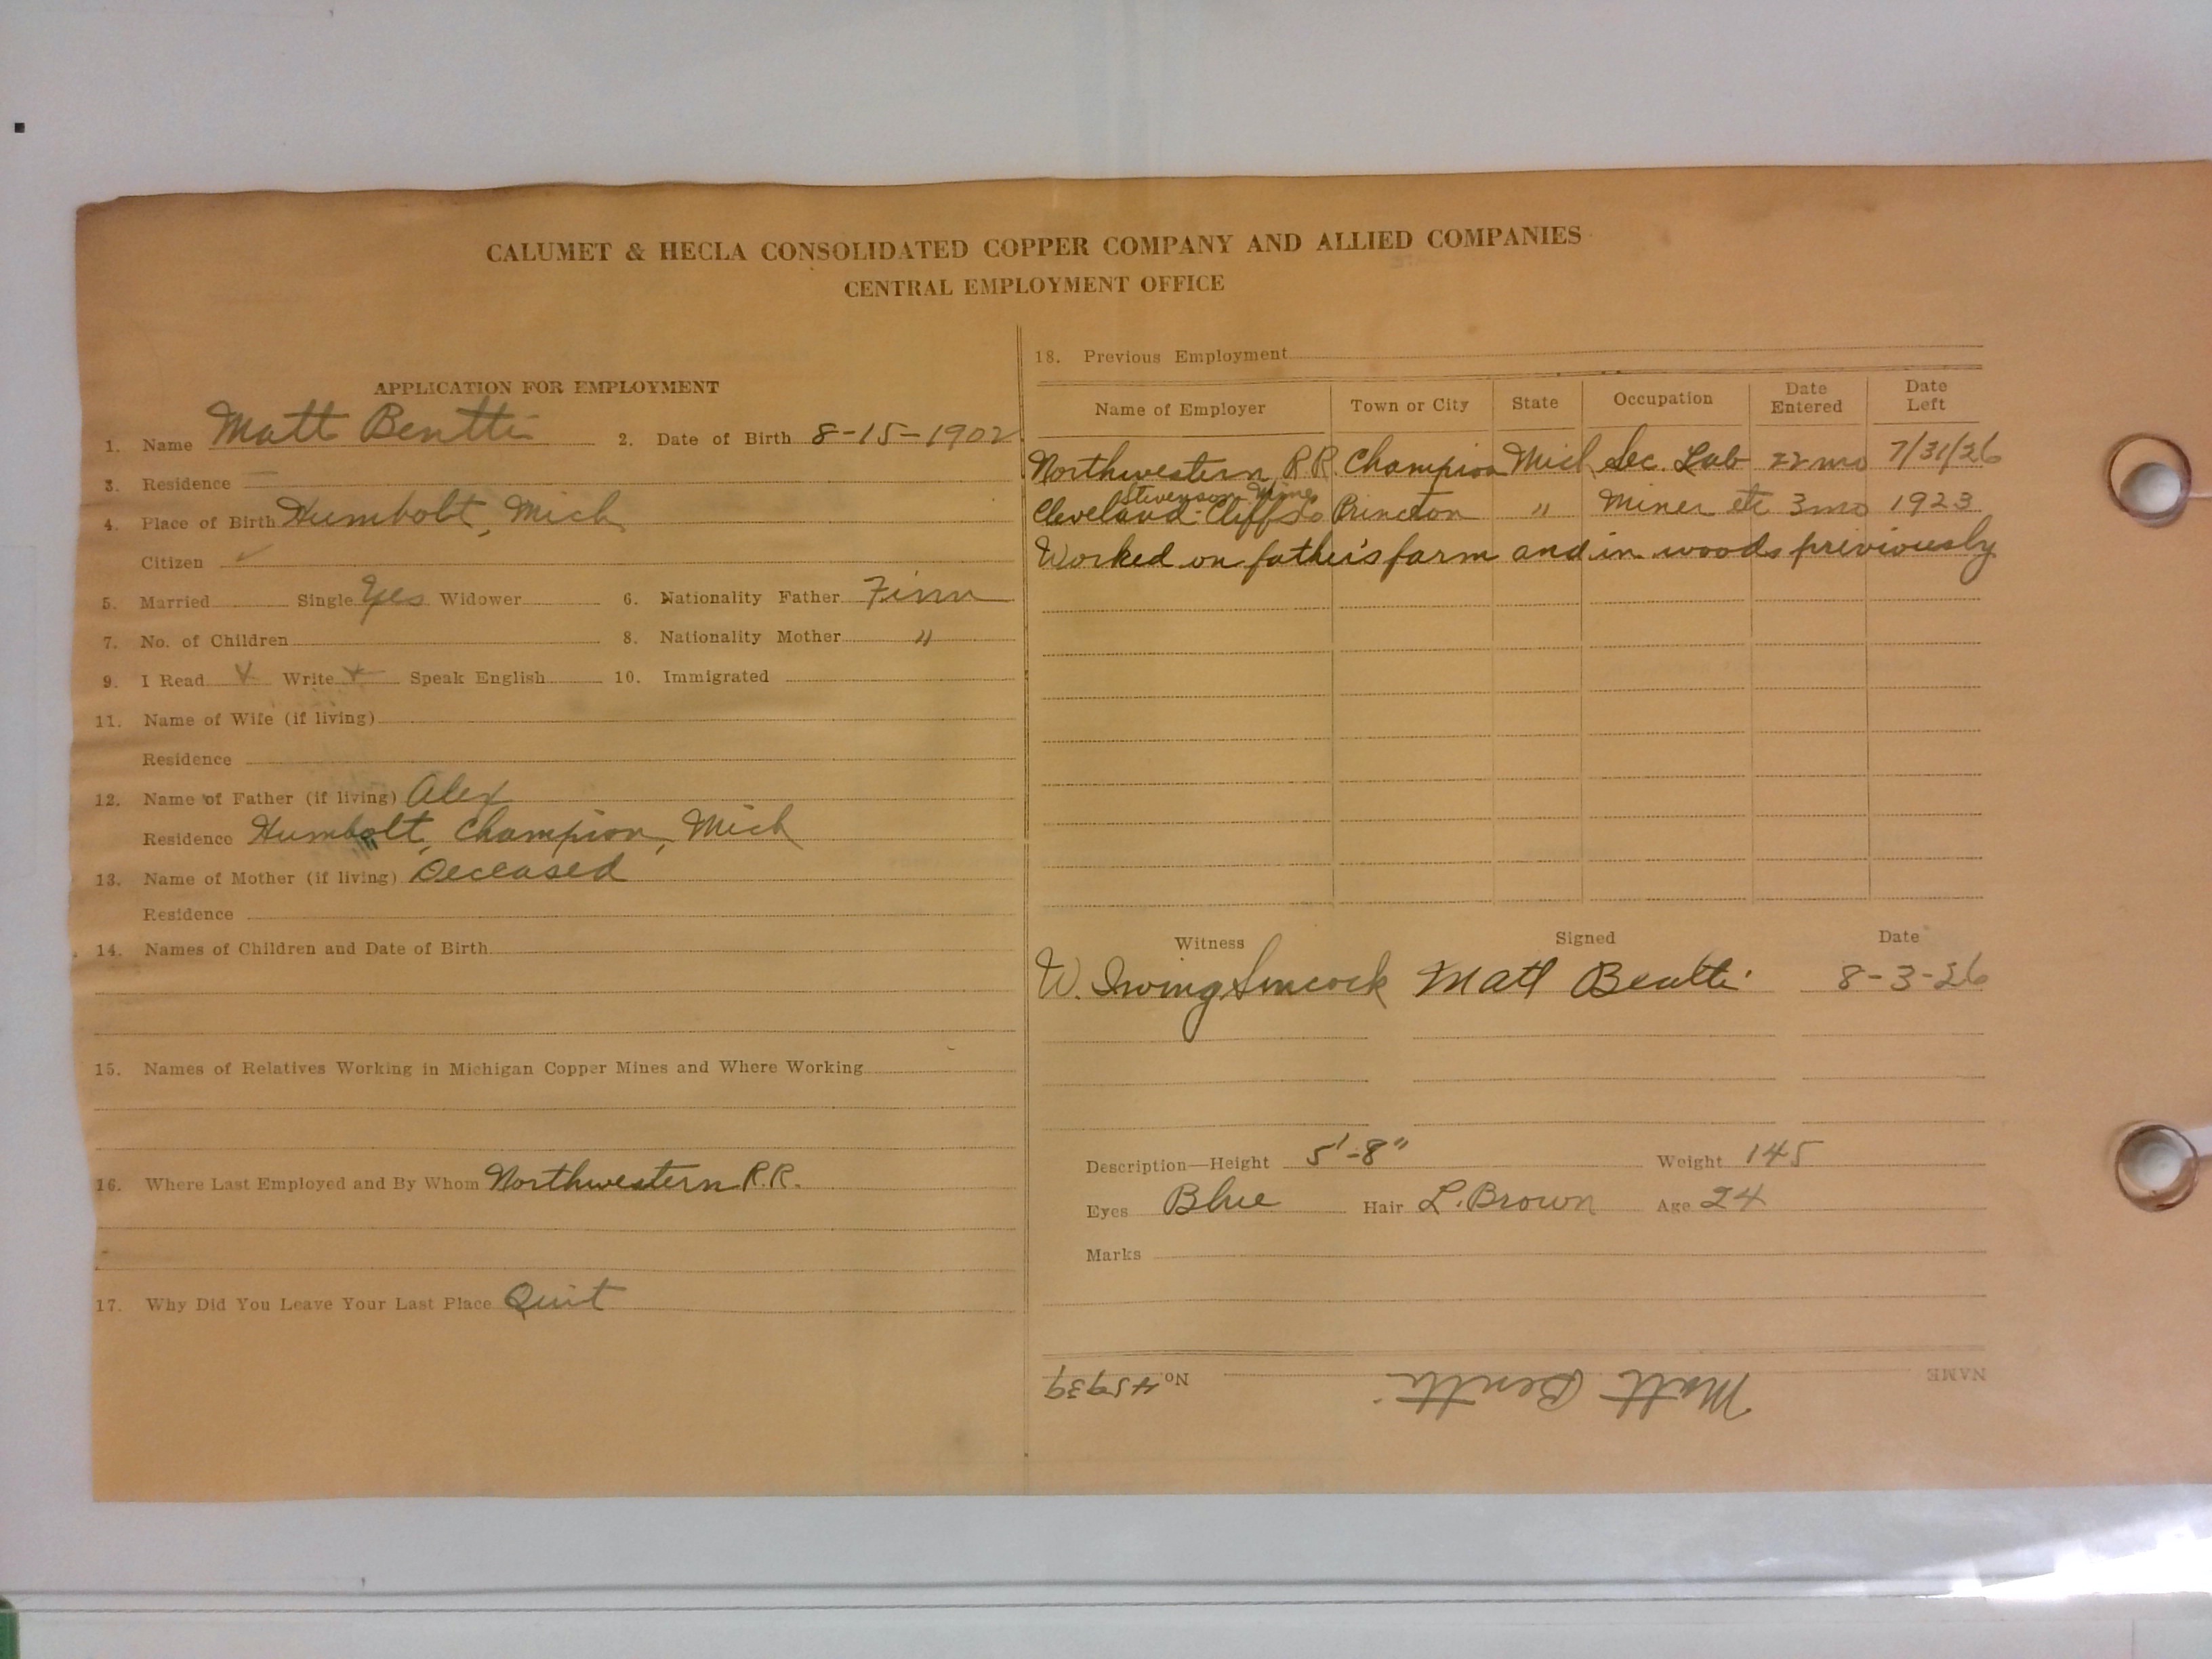 CALUMET & HECLA CONSOLIDATED COPPER COMPANY AND ALLIED COMPANIES
CENTRAL EMPLOYMENT OFFICE
APPLICATION FOR EMPLOYMENT
1. Name Matt Bentti 2. Date of Birth 8-15-1902
3. Residence
4. Place of Birth Humbolt, Mich
Citizen ✓
5. Married Single Yes Widower 6. Nationality Father Finn
7. No. of Children 8. Nationality Mother "
9. I Read X Write X Speak English 10. Immigrated
11. Name of Wife (if living)
Residence
12. Name of Father (if living) Alex
Residence Humbolt, Champion, Mich
13. Name of Mother (if living) Deceased
Residence
14. Names of Children and Date of Birth
15. Names of Relatives Working in Michigan Copper Mines and Where Working
16. Where Last Employed and By Whom Northwestern R.R.
17. Why Did You Leave Your Last Place Quit
18. Previous Employment
Name of Employer Town or City State Occupation Date Entered Date Left
Northwestern R.R. Champion Mich Sec. Lab 22 mo 7/31/26
Stevenson Mine
Cleveland-Cliffs Co Princeton " Miner etc 3 mo 1923
Worked on father's farm and in woods previously
Witness Signed Date
W. Irving Sincock Matt Bentti 8-3-26
Description—Height 5'-8" Weight 145
Eyes Blue Hair L. Brown Age 24
Marks
NAME Matt Bentti No. 45939